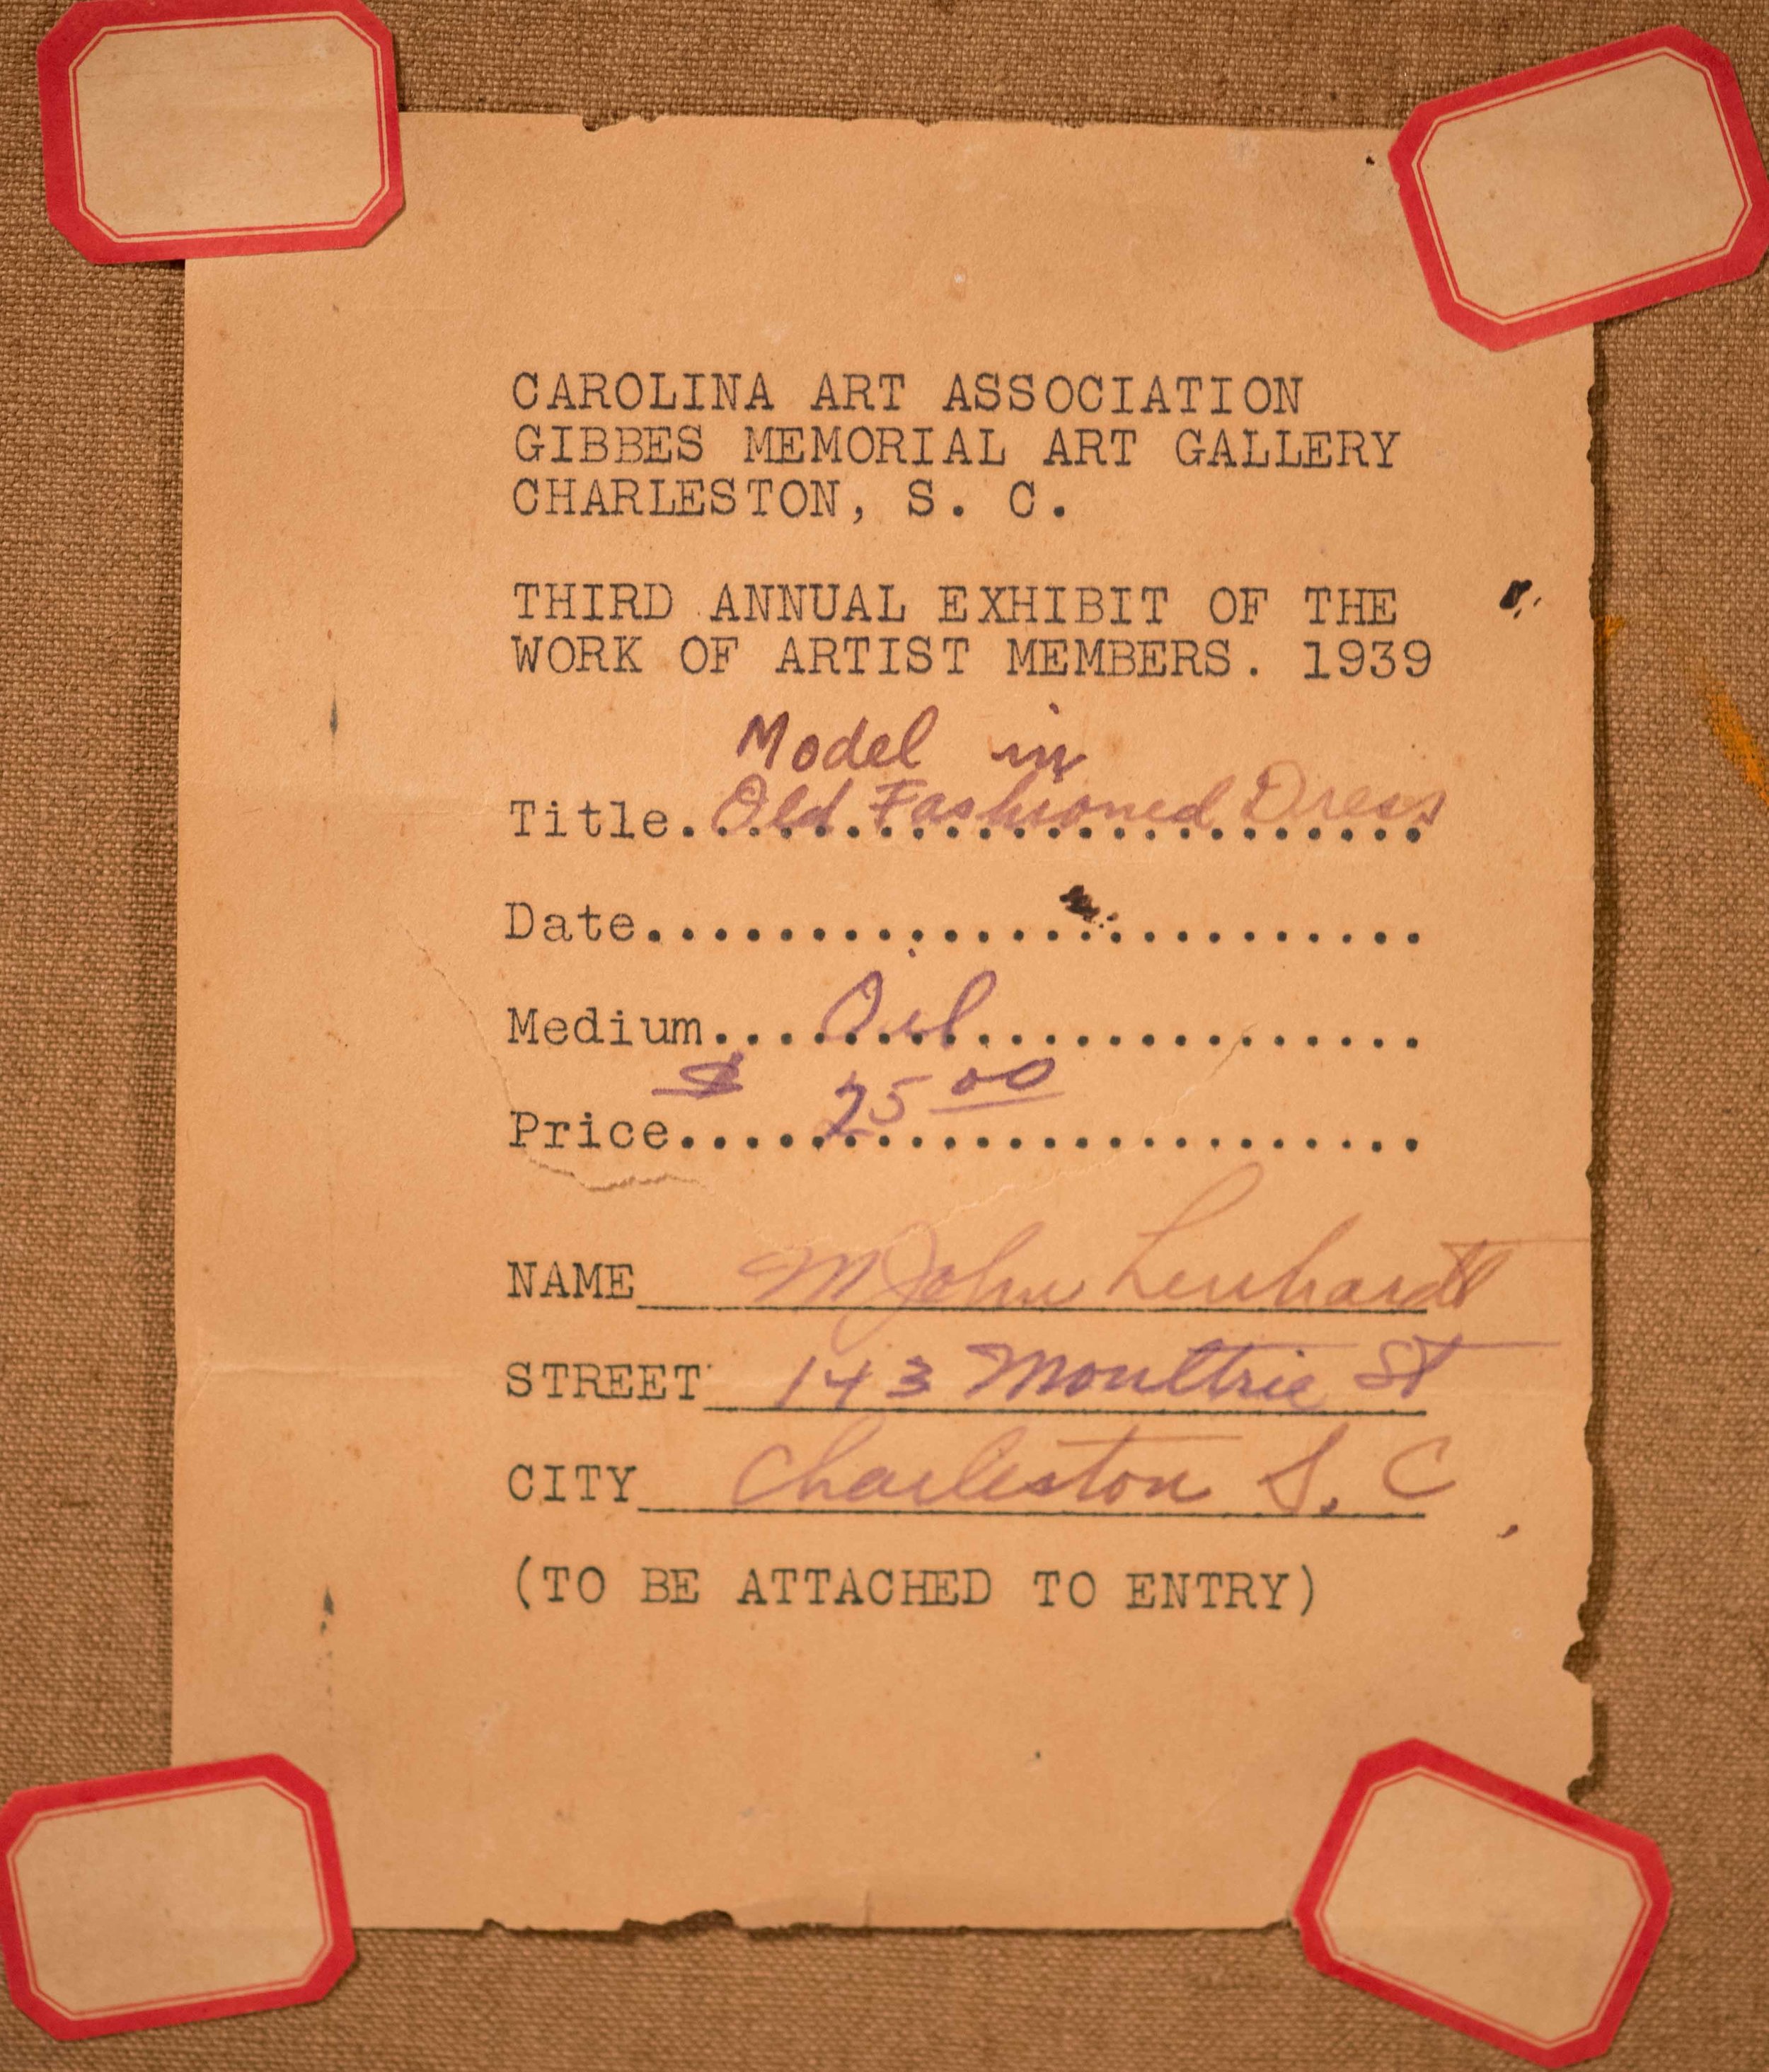 CAROLINA ART ASSOCIATION
GIBBES MEMORIAL ART GALLERY
CHARLESTON, S. C.
THIRD ANNUAL EXHIBIT OF THE
WORK OF ARTIST MEMBERS. 1939
Model in
Title. Old Fashioned Dress
Date...........................
Medium.... Oil ..............
$ 25 00
Price..........................
NAME M John Lenhardt
STREET 143 Moultrie St
CITY Charleston S. C
(TO BE ATTACHED TO ENTRY)